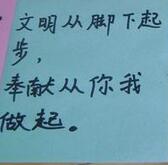 文明从脚下起
步,
奉献从你我
做起。